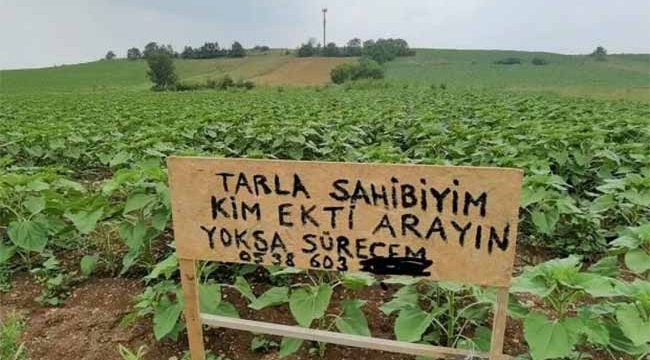 TARLA SAHİBİYİM
KİM EKTİ ARAYIN
YOKSA SÜRECEM
0538 603